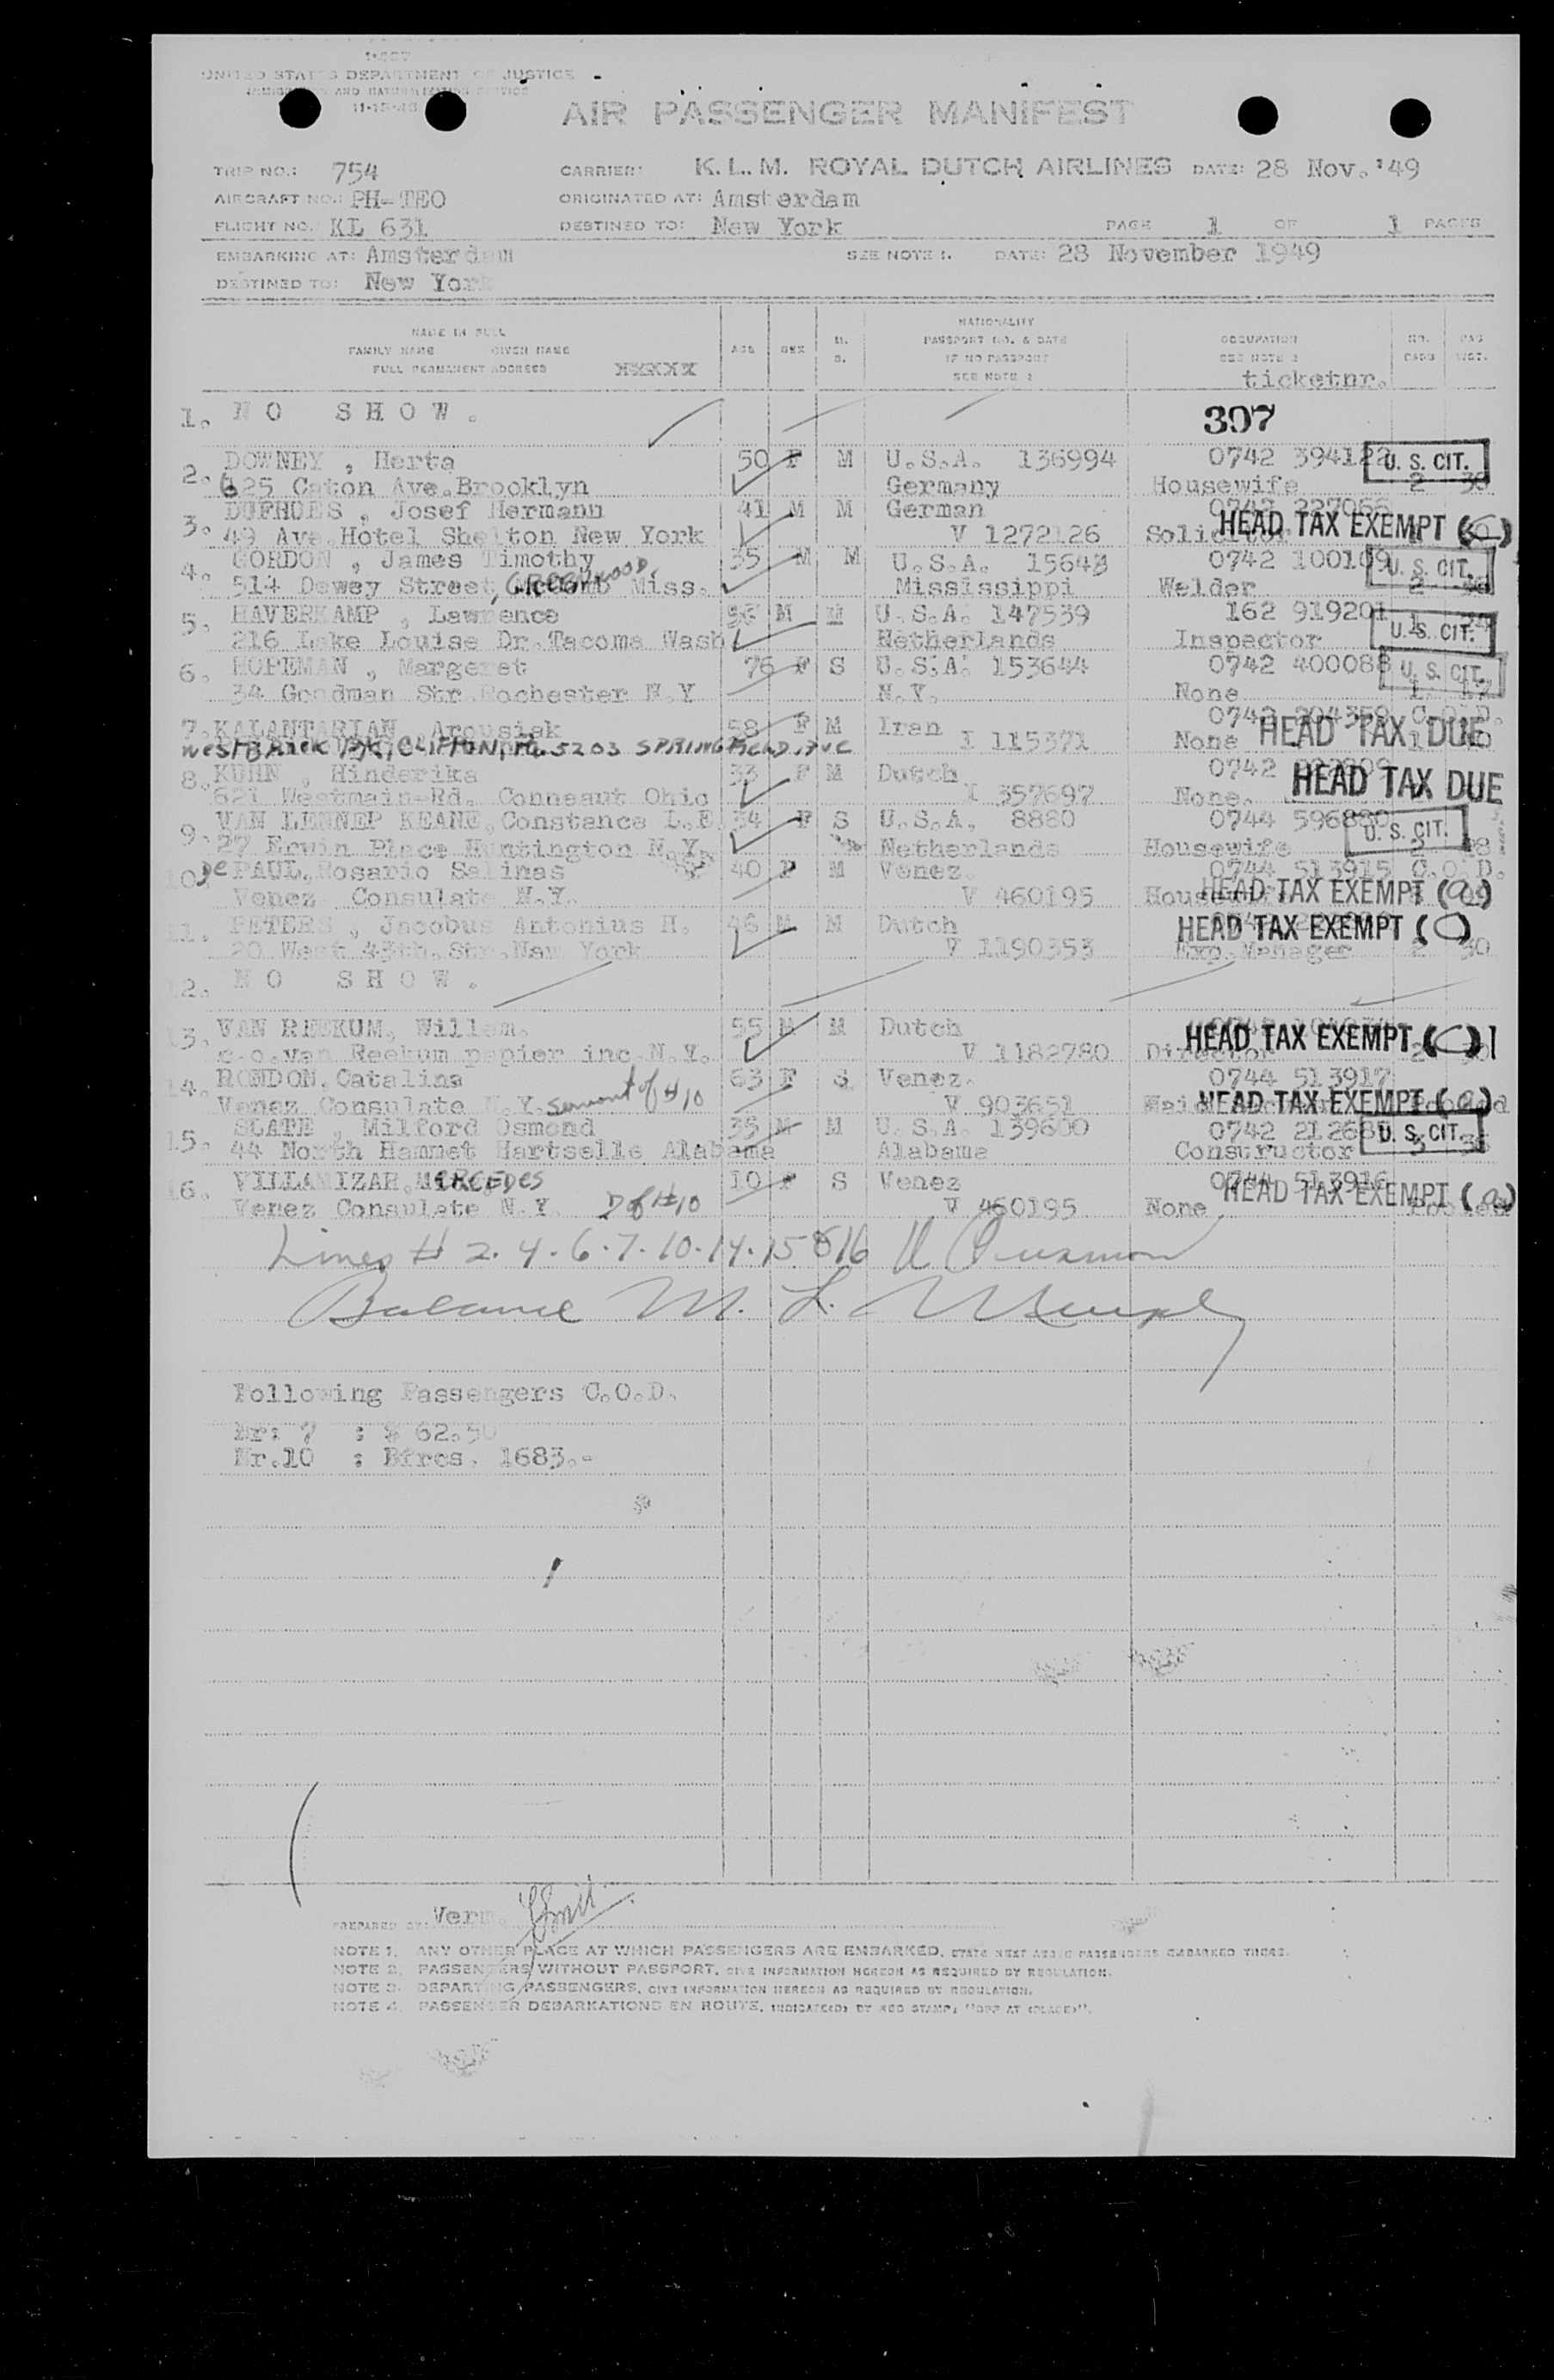 UNITED STATES DEPARTMENT OF JUSTICE
IMMIGRATION AND NATURALIZATION SERVICE
AIR PASSENGER MANIFEST
TRIP NO.: 754 CARRIER: K.L.M. ROYAL DUTCH AIRLINES DATE: 28 Nov. '49
AIRCRAFT NO.: PH-TEO ORIGINATED AT: Amsterdam
FLIGHT NO. KL 631 DESTINED TO: New York PAGE 1 OF 1 PAGES
EMBARKING AT: Amsterdam SEE NOTE 1. DATE: 28 November 1949
DESTINED TO: New York
NAME IN FULL
FAMILY NAME GIVEN NAME
FULL PERMANENT ADDRESS XXXXX
AGE SEX M. S.
NATIONALITY
PASSPORT NO. & DATE
IF NO PASSPORT
SEE NOTE 2
OCCUPATION
SEE NOTE 2
ticketnr.
1. NO SHOW. 307
2. DOWNEY , Herta 50 F M U.S.A. 136994 0742 394122 U. S. CIT.
625 Caton Ave.Brooklyn Germany Housewife 2
3. DUFHUES , Josef Hermann 41 M M German
49 Ave.Hotel Shelton New York V 1272126 HEAD TAX EXEMPT
4. GORDON , James Timothy 35 M M U.S.A. 15643 0742 100109 U. S. CIT.
514 Dewey Street, GREENWOOD Miss. Mississippi Welder 2
5. HAVERKAMP , Lawrence M M U.S.A. 147539 162 919201 U. S. CIT.
216 Lake Louise Dr.Tacoma Wash Netherlands Inspector
6. HOPEMAN , Margeret 76 F S U.S.A. 153644 0742 400088 U. S. CIT.
34 Goodman Str.Rochester N.Y N.Y. None
7. KALANTARIAN, Arousiak 58 F M Iran 0742 204359 C.O.D.
5203 SPRINGFIELD AVE I 115371 None HEAD TAX DUE
8. KUHN , Hinderika 33 F M Dutch 0742
621 Westmain-Rd. Conneaut Ohio I 357697 None. HEAD TAX DUE
9. VAN LENNEP KEANE, Constance L.E. 34 F S U.S.A. 8880 0744 596880 U. S. CIT.
27 Erwin Place Huntington N.Y. Netherlands Housewife 2
10. De PAUL, Rosario Salinas 40 F M Venez. 0744 513915 C.O.D.
Venez Consulate N.Y. V 460195 HEAD TAX EXEMPT (a)
11. PETERS , Jacobus Antonius H. 46 M M Dutch HEAD TAX EXEMPT
20 West 43th.Str.New York V 1190353 Exp.Manager 2 30
12. NO SHOW.
13. VAN REEKUM, Willem. 55 M M Dutch HEAD TAX EXEMPT
c.o.van Reekum papier inc N.Y. V 1182780 Director 2
14. RONDON, Catalina 63 F S Venez. 0744 513917
Venez Consulate N.Y. servant of #10 V 903651 HEAD TAX EXEMPT (a)
15. SLATE , Milford Osmond 35 M M U.S.A. 139600 0742 212685 U. S. CIT.
44 North Hammet Hartselle Alabama Alabama Constructor 3
16. VILLAMIZAR, MERCEDES 10 F S Venez 0744 513916
Venez Consulate N.Y. D of #10 V 460195 None HEAD TAX EXEMPT (a)
Lines # 2.4.6.7.10.14.15 & 16
Balance M. L.
Following Passengers C.O.D.
Nr: 7 : $ 62.50
Nr.10 : Bfrcs. 1683.-
PREPARED BY: Verm.
NOTE 1. ANY OTHER PLACE AT WHICH PASSENGERS ARE EMBARKED, STATE NEXT ABOVE PASSENGERS EMBARKED THERE.
NOTE 2. PASSENGERS WITHOUT PASSPORT, GIVE INFORMATION HEREON AS REQUIRED BY REGULATION.
NOTE 3. DEPARTING PASSENGERS, GIVE INFORMATION HEREON AS REQUIRED BY REGULATION.
NOTE 4. PASSENGER DEBARKATIONS EN ROUTE, INDICATE(D) BY RED STAMP, "OFF AT (PLACE)".